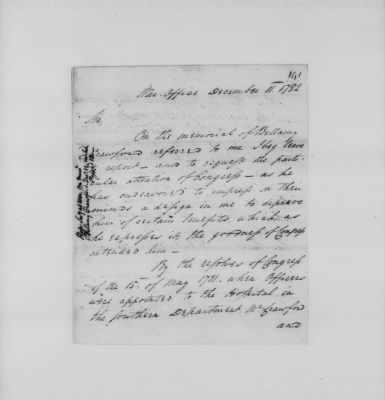 191
War-Office December 11. 1782
Sir
On the memorial of Bellamy
Crawford referred to me I beg leave
to report — and to request the parti-
cular attention of Congress — as he
has endeavored to impress on their
minds a design in me to deprive
him of certain benefits, which, as
he expresses it, the goodness of Congress
intended him —
By the resolves of Congress
of the 15th. of May 1781. when Officers
were appointed to the Hospital in
the Southern Department, Mr. Crawford
and